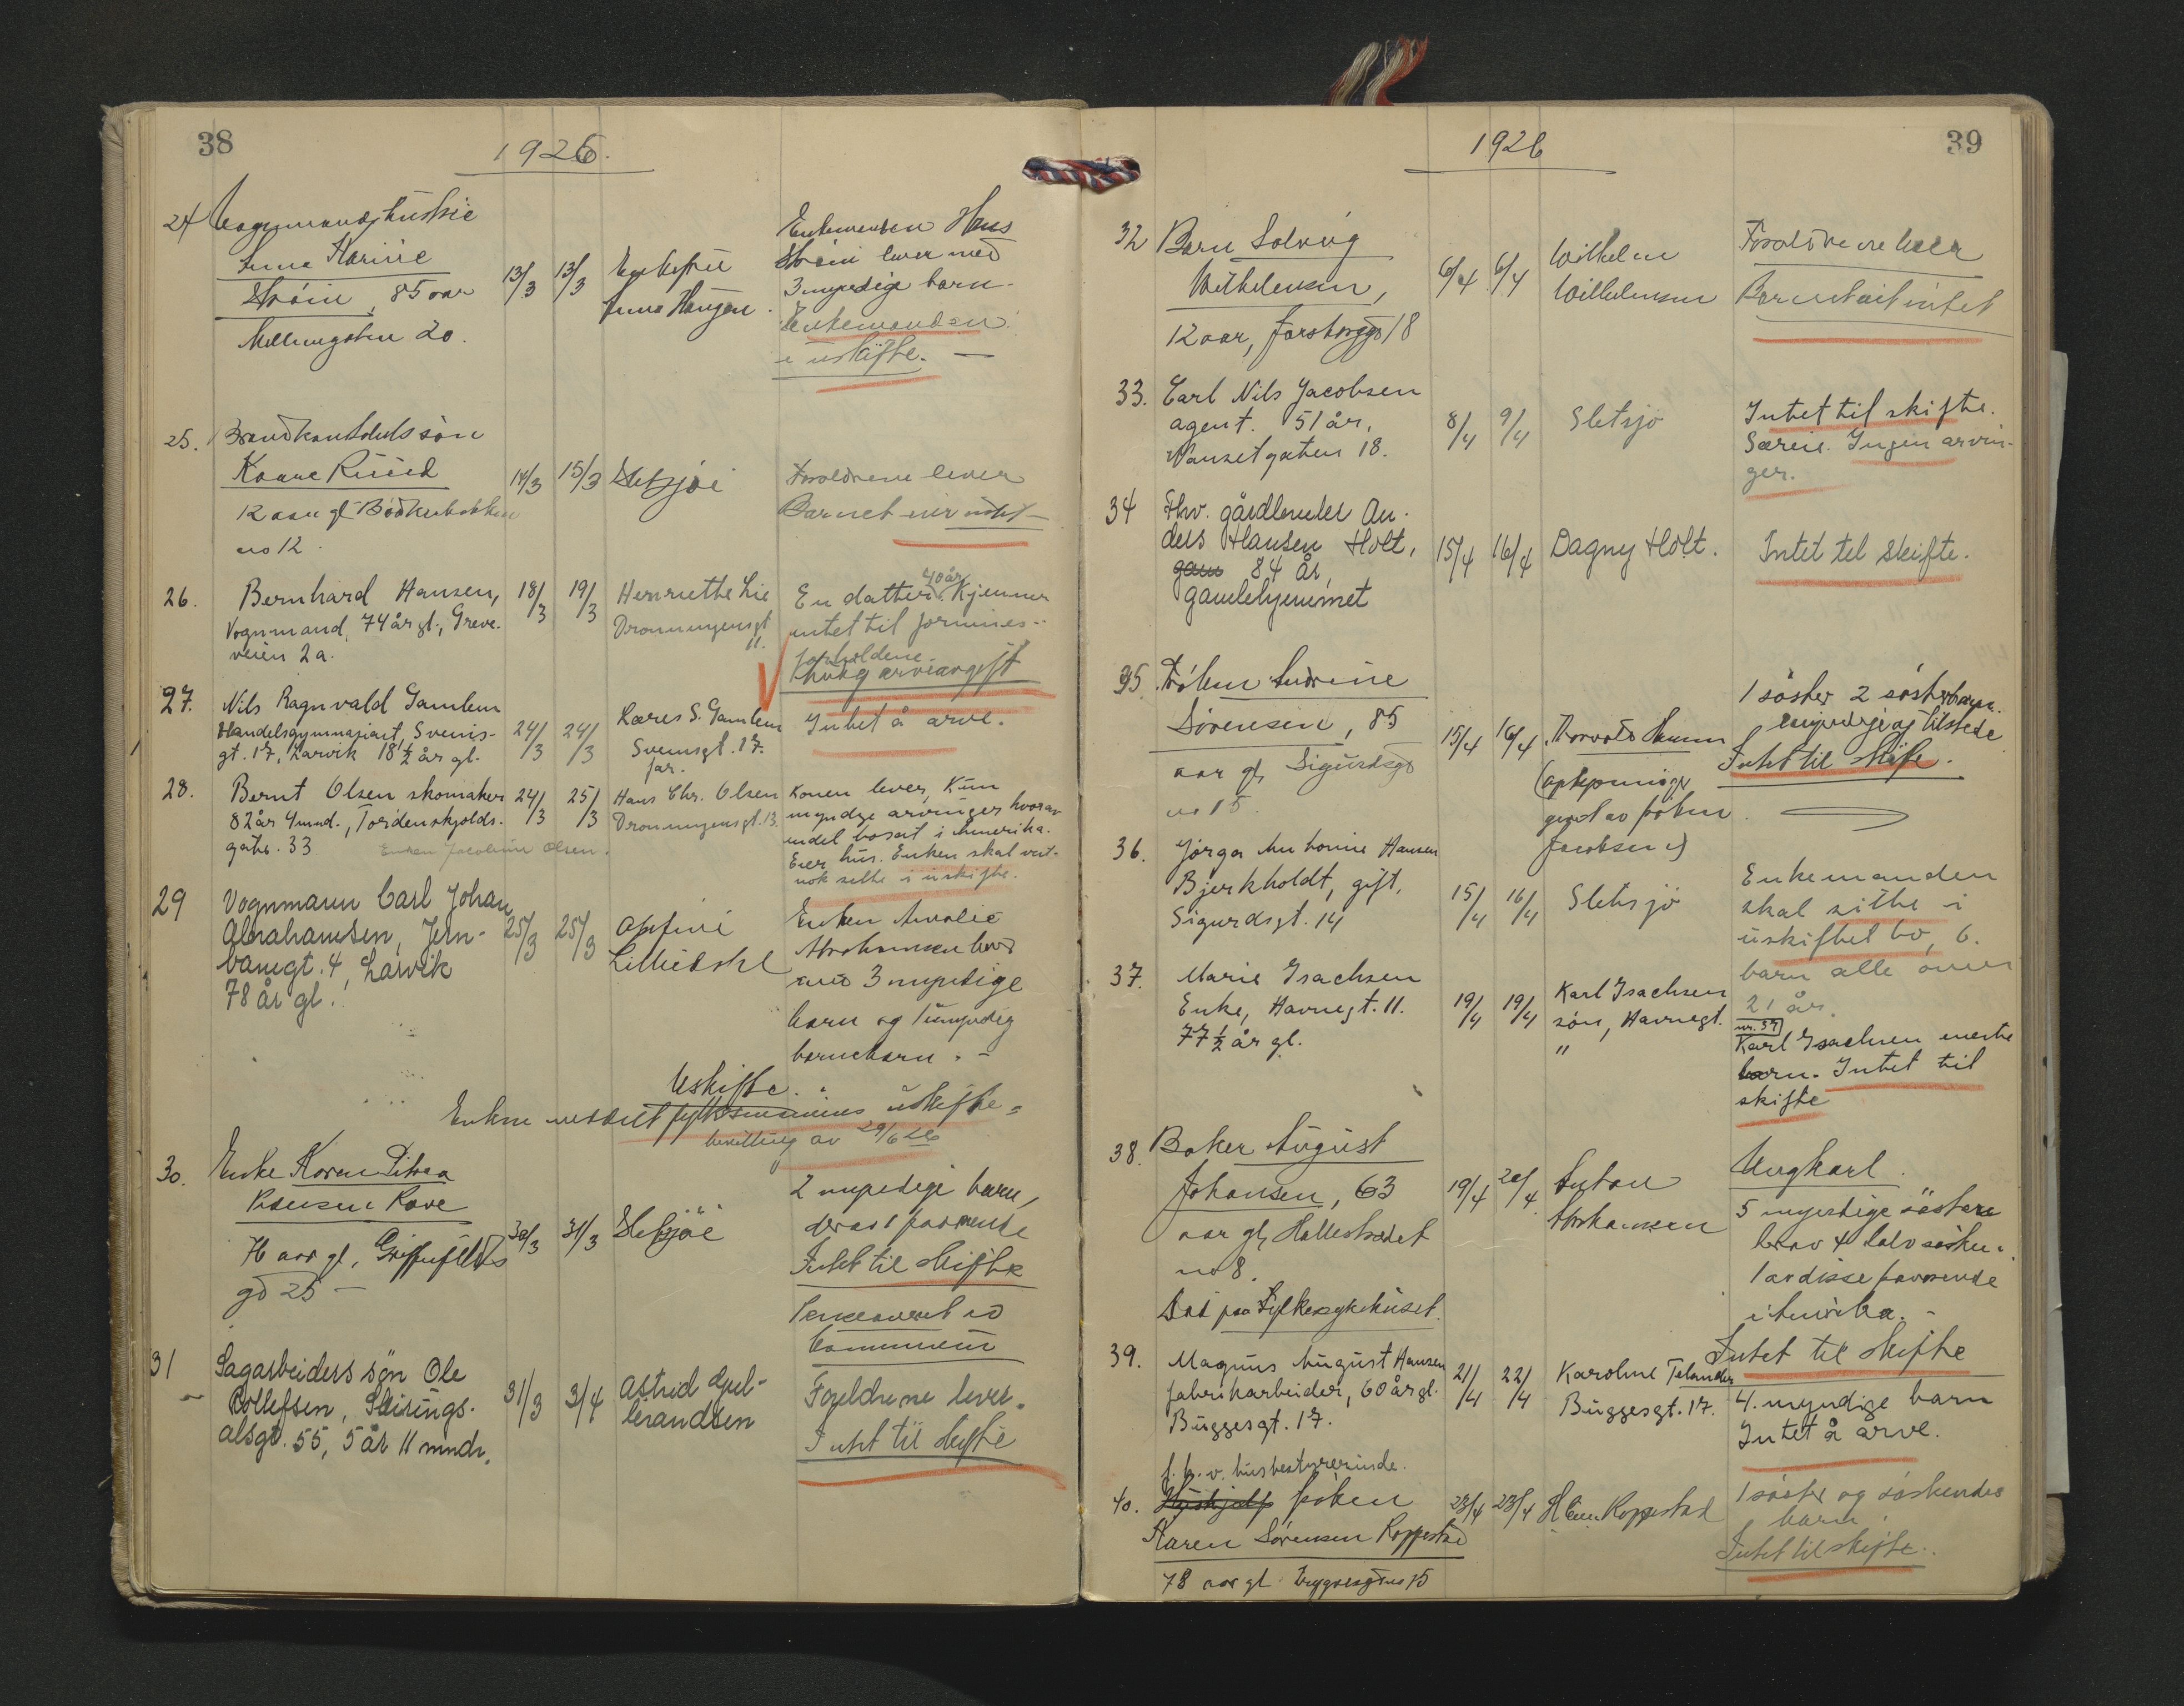 38
1926.
24 Vognmandshustrue
Anna Karine
Strøm, 85 aar
Møllergaten 20.
13/3 13/3
Enkefru
Anna Haugen.
Enkemanden Hans
Strøm lever med
3 myndige barn.
Enkemanden
i uskifte. —
25.
søn
Kaare Ruud
12 aar gl Bødkerbakken
no 12.
14/3 15/3 Sletsjøe
Forældrene lever
Barnet eier intet
26. Bernhard Hansen,
Vognmand, 74 år gl., Greve-
veien 2a.
18/3 19/3
Henriette Lie
Dronningensgt
11.
40 år
En datter. Kjenner
intet til formues-
forholdene.
arveavgift
27. Nils Ragnvald Gamlem
Handelsgymnasiast, Svens-
gt. 17, Larvik 18 1/2 år gl.
24/3 24/3
Lærer S. Gamlem
Svensgt. 17.
far.
Intet å arve.
28. Bernt Olsen skomaker
82 år 4 mnd., Tordenskjolds-
gate. 33
Enken Jacobine Olsen.
24/3 25/3
Hans Chr. Olsen
Dronningensgt. 13.
Konen lever, Kun
myndge arvinger hvorav
endel bosat i Amerika.
Eier hus. Enken skal vist-
nok sitte i uskifte.
29 Vognmann Carl Johan
Abrahamsen, Jern-
banegt. 4, Larvik
78 år gl.
25/3 25/3
Lilliedahl
Enken Amalie
Abrahamsen lever
med 3 myndige
barn og 1 umyndig
barnebarn. -
Uskifte.
Enken meddelt fylkesmannens uskifte=
bevilling av 29/6 26
30. Enke Karen Petrea
Rove
76 aar gl, Griffenfelds
gd 25 —
30/3 31/3 Sletsjøe
2 myndige barn,
derav 1 fraværende
Intet til skifte
kommunen
31 Sagarbeiders søn Ole
Rollefsen, Skirings-
alsgt. 55, 5 år 11 mndr.
31/3 3/4
Astrid Gul-
brandsen
Foreldrene lever.
Intet til skifte
39
1926
32 Barn Solveig
Wilhelmsen,
12 aar, Farskovgt 18
6/4 6/4
Wilhelm
Wilhelmsen
Forældrene lever
Barnet eiet intet
33. Carl Nils Jacobsen
agent. 51 år,
Nansetgaten 18.
8/4 9/4
Sletsjø
Intet til skifte.
Særeie. Ingen arvin-
ger.
34 Fhv. gårdbruker An-
ders Hansen Holt,
84 år,
gamlehjemmet
15/4 16/4 Dagny Holt.
Intet til skifte.
35. Frøken Andrine
Sørensen, 85
aar gl, Sigurdsgt
no 15.
15/4 16/4 Thorvald Hansen
av frøken
Jacobsen)
1 søster 2 søsterbarn
myndige og tilstede
Intet til skifte.
36. Jørga Antonie Hansen
Bjerkholdt, gift,
Sigurdsgt. 14
15/4 16/4
Sletsjø
Enkemanden
skal sitte i
uskiftet bo, 6.
barn alle over
21 år.
37. Marie Isachsen
Enke, Havnegt. 11.
77 1/2 år gl.
19/4 19/4
Karl Isachsen
søn, Havnegt.
"
nr. 37
Karl Isachsen eneste
barn. Intet til
skifte
38. Baker August
Johansen, 63
aar gl, Hallestrædet
no 8.
Død paa Fylkessykehuset.
19/4 20/4.
Anton
Abrahamsen
Ungkarl.
5 myndige søskene
herav 4 halvsøsken.
1 av disse fraværende
i Amerika. -
Intet til skifte
39. Magnus August Hansen
fabrikarbeider, 60 år gl.
Buggesgt. 17.
21/4 22/4
Karoline Telander
Buggesgt. 17.
4. myndige barn
Intet å arve.
f. h. v. husbestyrerinde.
40. Hushjelp frøken
Karen Sørensen Roppestad
78 aar gl no 15
23/4 23/4 Roppestad
1 søster og søskendes
barn.
Intet til skifte.